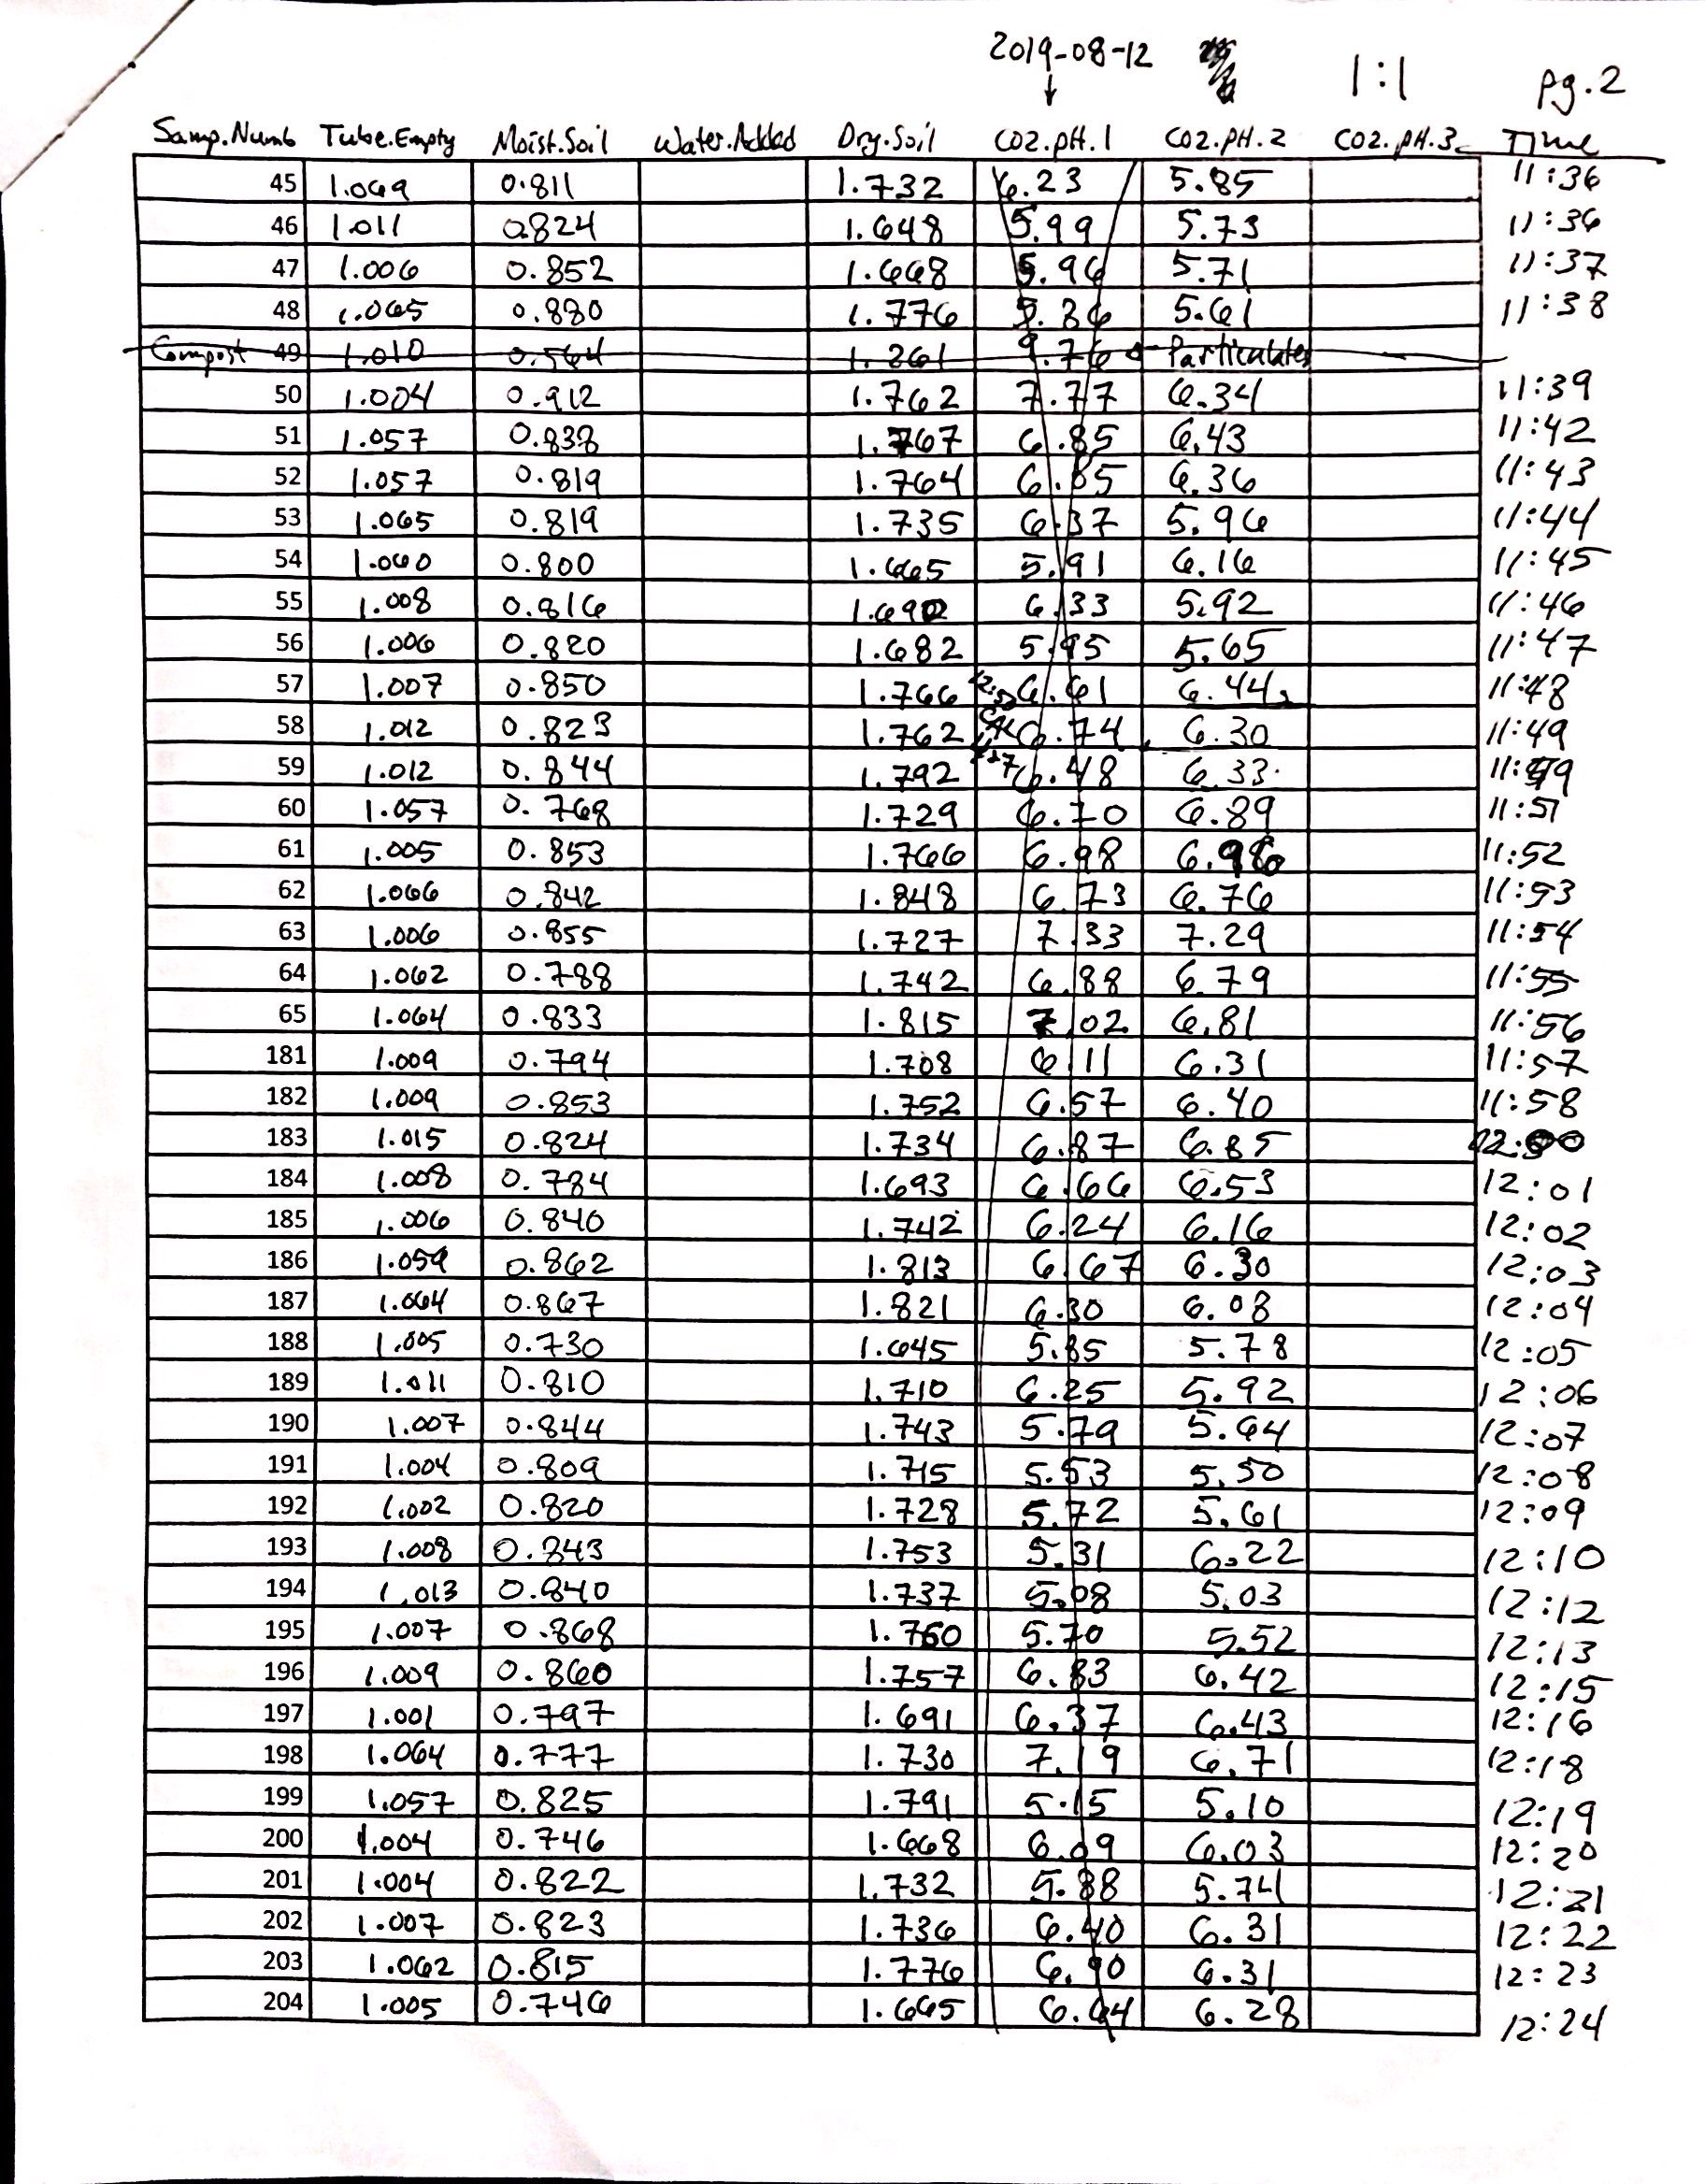 2019-08-12 1:1 pg.2
↓
Samp.Numb Tube.Empty Moist.Soil Water.Added Dry.Soil CO2.pH.1 CO2.pH.2 CO2.pH.3 Time
45 1.069 0.811 1.732 6.23 5.85 11:36
46 1.011 0.824 1.648 5.99 5.73 11:36
47 1.006 0.852 1.668 5.96 5.71 11:37
48 1.065 0.880 1.776 5.36 5.61 11:38
Compost 49 1.010 0.564 1.261 9.76 Particulates
50 1.004 0.912 1.762 7.77 6.34 11:39
51 1.057 0.838 1.767 6.85 6.43 11:42
52 1.057 0.819 1.764 6.85 6.36 11:43
53 1.065 0.819 1.735 6.37 5.96 11:44
54 1.060 0.800 1.665 5.91 6.16 11:45
55 1.008 0.816 1.690 6.33 5.92 11:46
56 1.006 0.820 1.682 5.95 5.65 11:47
57 1.007 0.850 1.766 6.61 6.44 11:48
58 1.012 0.823 1.762 6.74 6.30 11:49
59 1.012 0.844 1.792 6.48 6.33
60 1.057 0.768 1.729 6.70 6.89 11:51
61 1.005 0.853 1.766 6.98 11:52
62 1.066 0.842 1.848 6.73 6.76 11:53
63 1.006 0.855 1.727 7.33 7.29 11:54
64 1.062 0.788 1.742 6.88 6.79 11:55
65 1.064 0.833 1.815 7.02 6.81 11:56
181 1.009 0.794 1.708 6.11 6.31 11:57
182 1.009 0.853 1.752 6.57 6.40 11:58
183 1.015 0.824 1.734 6.87 6.85 12:00
184 1.008 0.784 1.693 6.66 6.53 12:01
185 1.006 0.840 1.742 6.24 6.16 12:02
186 1.059 0.862 1.813 6.67 6.30 12:03
187 1.064 0.867 1.821 6.30 6.08 12:04
188 1.005 0.730 1.645 5.85 5.78 12:05
189 1.011 0.810 1.710 6.25 5.92 12:06
190 1.007 0.844 1.743 5.79 5.64 12:07
191 1.004 0.809 1.715 5.53 5.50 12:08
192 1.002 0.820 1.728 5.72 5.61 12:09
193 1.008 0.843 1.753 5.31 6.22 12:10
194 1.013 0.840 1.737 5.08 5.03 12:12
195 1.007 0.868 1.760 5.70 5.52 12:13
196 1.009 0.860 1.757 6.83 6.42 12:15
197 1.001 0.797 1.691 6.37 6.43 12:16
198 1.064 0.777 1.730 7.19 6.71 12:18
199 1.057 0.825 1.791 5.15 5.10 12:19
200 1.004 0.746 1.668 6.09 6.03 12:20
201 1.004 0.822 1.732 5.88 5.74 12:21
202 1.007 0.823 1.736 6.40 6.31 12:22
203 1.062 0.815 1.776 6.90 6.31 12:23
204 1.005 0.746 1.665 6.64 6.28 12:24